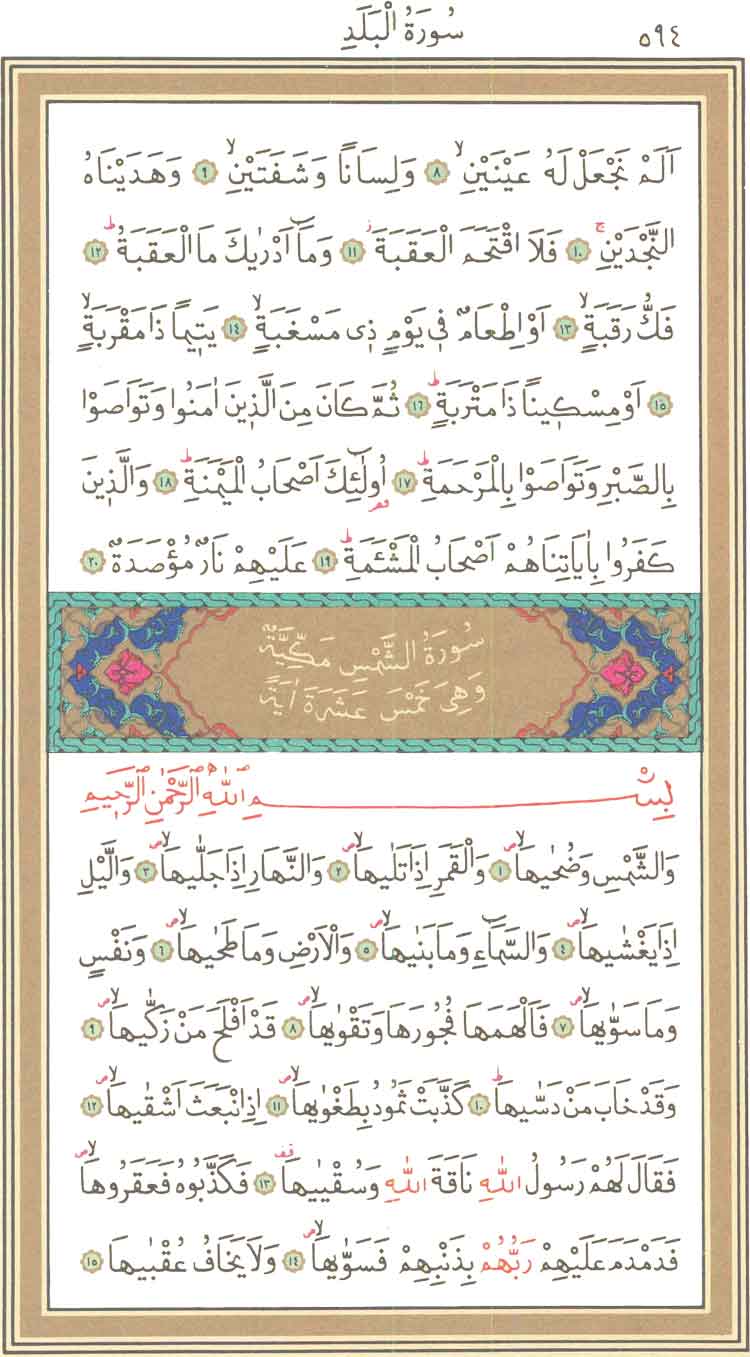 سُورَةُ الْبَلَدِ ٥٩٤
اَلَمْ نَجْعَلْ لَهُ عَيْنَيْنِۙ ﴿٨﴾ وَلِسَانًا وَشَفَتَيْنِۙ ﴿٩﴾ وَهَدَيْنَاهُ
النَّجْدَيْنِۚ ﴿١٠﴾ فَلَا اقْتَحَمَ الْعَقَبَةَۘ ﴿١١﴾ وَمَٓا اَدْرٰيكَ مَا الْعَقَبَةُۜ ﴿١٢﴾
فَكُّ رَقَبَةٍۙ ﴿١٣﴾ اَوْ اِطْعَامٌ ف۪ي يَوْمٍ ذ۪ي مَسْغَبَةٍۙ ﴿١٤﴾ يَت۪يمًا ذَا مَقْرَبَةٍۙ
﴿١٥﴾ اَوْ مِسْك۪ينًا ذَا مَتْرَبَةٍۜ ﴿١٦﴾ ثُمَّ كَانَ مِنَ الَّذ۪ينَ اٰمَنُوا وَتَوَاصَوْا
بِالصَّبْرِ وَتَوَاصَوْا بِالْمَرْحَمَةِۜ ﴿١٧﴾ اُو۬لٰٓئِكَ اَصْحَابُ الْمَيْمَنَةِۜ ﴿١٨﴾ وَالَّذ۪ينَ
كَفَرُوا بِاٰيَاتِنَا هُمْ اَصْحَابُ الْمَشْـَٔمَةِۜ ﴿١٩﴾ عَلَيْهِمْ نَارٌ مُؤْصَدَةٌ ﴿٢٠﴾
سُورَةُ الشَّمْسِ مَكِّيَّةٌ
وَهِيَ خَمْسَ عَشَرَةَ اٰيَةً
بِسْمِ اللّٰهِ الرَّحْمٰنِ الرَّح۪يمِ
وَالشَّمْسِ وَضُحٰيهَاۙۖ ﴿١﴾ وَالْقَمَرِ اِذَا تَلٰيهَاۙۖ ﴿٢﴾ وَالنَّهَارِ اِذَا جَلّٰيهَاۙۖ ﴿٣﴾ وَالَّيْلِ
اِذَا يَغْشٰيهَاۙۖ ﴿٤﴾ وَالسَّمَٓاءِ وَمَا بَنٰيهَاۙۖ ﴿٥﴾ وَالْاَرْضِ وَمَا طَحٰيهَاۙۖ ﴿٦﴾ وَنَفْسٍ
وَمَا سَوّٰيهَاۙۖ ﴿٧﴾ فَاَلْهَمَهَا فُجُورَهَا وَتَقْوٰيهَاۙۖ ﴿٨﴾ قَدْ اَفْلَحَ مَنْ زَكّٰيهَاۙۖ ﴿٩﴾
وَقَدْ خَابَ مَنْ دَسّٰيهَاۜ ﴿١٠﴾ كَذَّبَتْ ثَمُودُ بِطَغْوٰيهَاۙۖ ﴿١١﴾ اِذِ انْبَعَثَ اَشْقٰيهَاۙۖ ﴿١٢﴾
فَقَالَ لَهُمْ رَسُولُ اللّٰهِ نَاقَةَ اللّٰهِ وَسُقْيٰيهَا ﴿١٣﴾ فَكَذَّبُوهُ فَعَقَرُوهَاۙۖ
فَدَمْدَمَ عَلَيْهِمْ رَبُّهُمْ بِذَنْبِهِمْ فَسَوّٰيهَاۙۖ ﴿١٤﴾ وَلَا يَخَافُ عُقْبٰيهَا ﴿١٥﴾